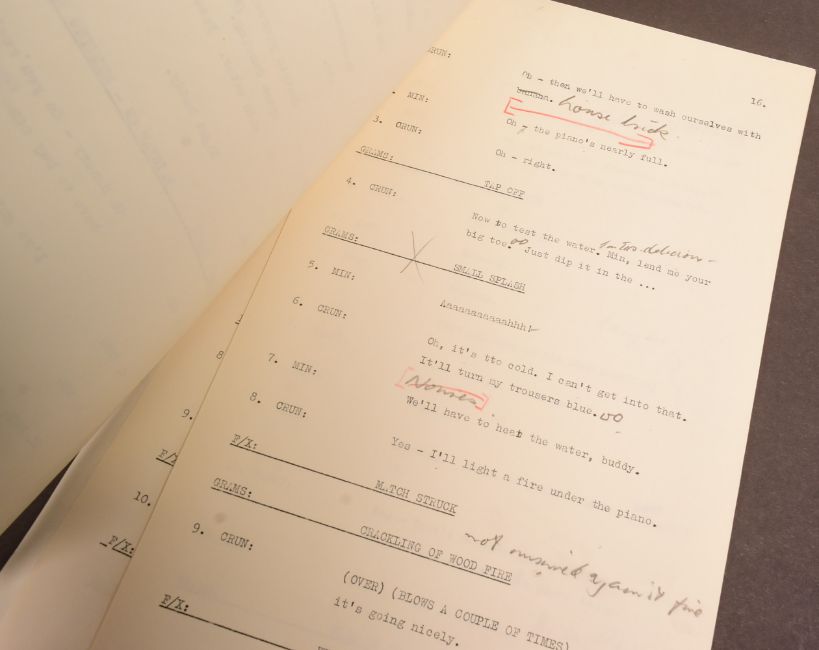 CRUN:
Oh - then we'll have to wash ourselves with
16.
banana. house brick
MIN:
Oh - the piano's nearly full.
3. CRUN:
Oh - right.
GRAMS: TAP OFF
4. CRUN:
Now to test the water. Min, lend me your
big toe. Just dip it in the ...
GRAMS: SMALL SPLASH
5. MIN:
Aaaaaaaaaaahhh!
6. CRUN:
Oh, it's tto cold. I can't get into that.
It'll turn my trousers blue.
7. MIN:
We'll have to heat the water, buddy.
8. CRUN:
Yes - I'll light a fire under the piano.
F/X: MATCH STRUCK
GRAMS: CRACKLING OF WOOD FIRE
not against fire
9. CRUN:
(OVER) (BLOWS A COUPLE OF TIMES)
it's going nicely.
F/X:
8
9.
F/X:
10.
F/X: